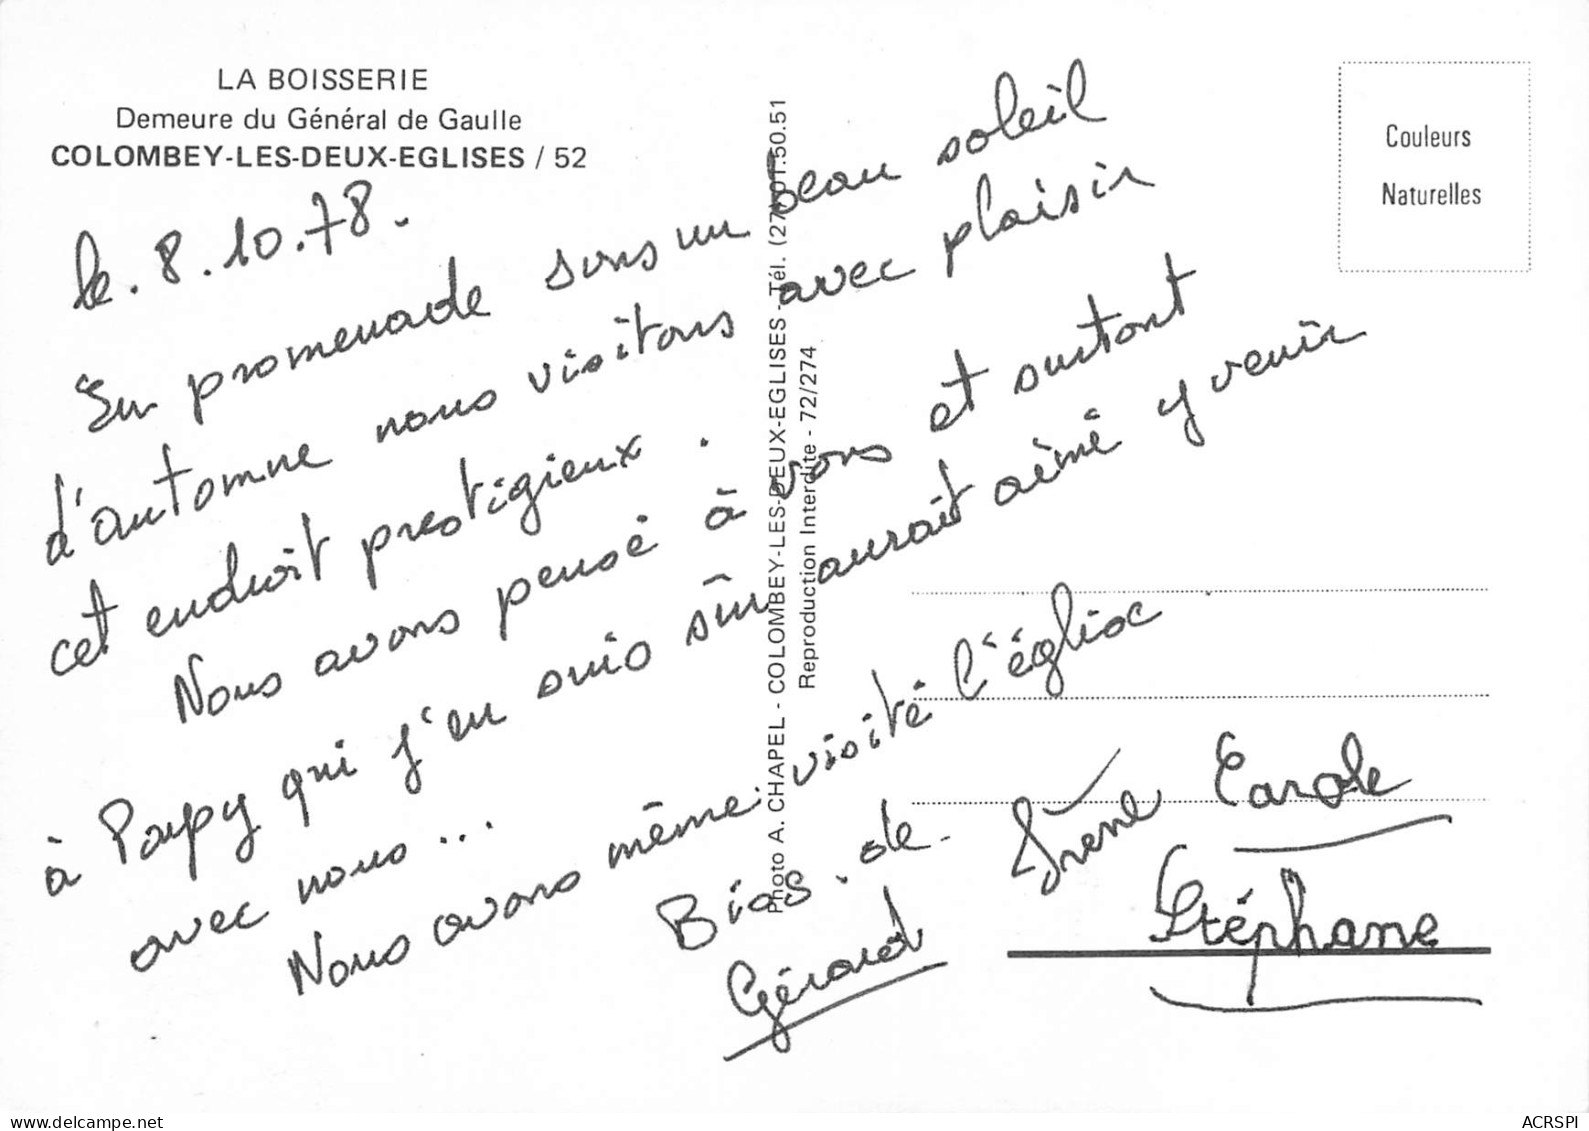 LA BOISSERIE
Demeure du Général de Gaulle
COLOMBEY-LES-DEUX-EGLISES / 52
le. 8.10.78.
En promenade sous un beau soleil
d'automne nous visitons avec plaisir
cet endroit prestigieux.
Nous avons pensé à vous et surtout
à Papy qui j'en suis sûr aurait aimé y venir
avec nous...
Nous avons même visité l'église
Bios. de
Gérard
Irène Carole
Stéphane
Photo A. CHAPEL - COLOMBEY-LES-DEUX-EGLISES - Tél. (27) 01.50.51
Reproduction Interdite - 72/274
Couleurs
Naturelles
delcampe.net
ACRSPI